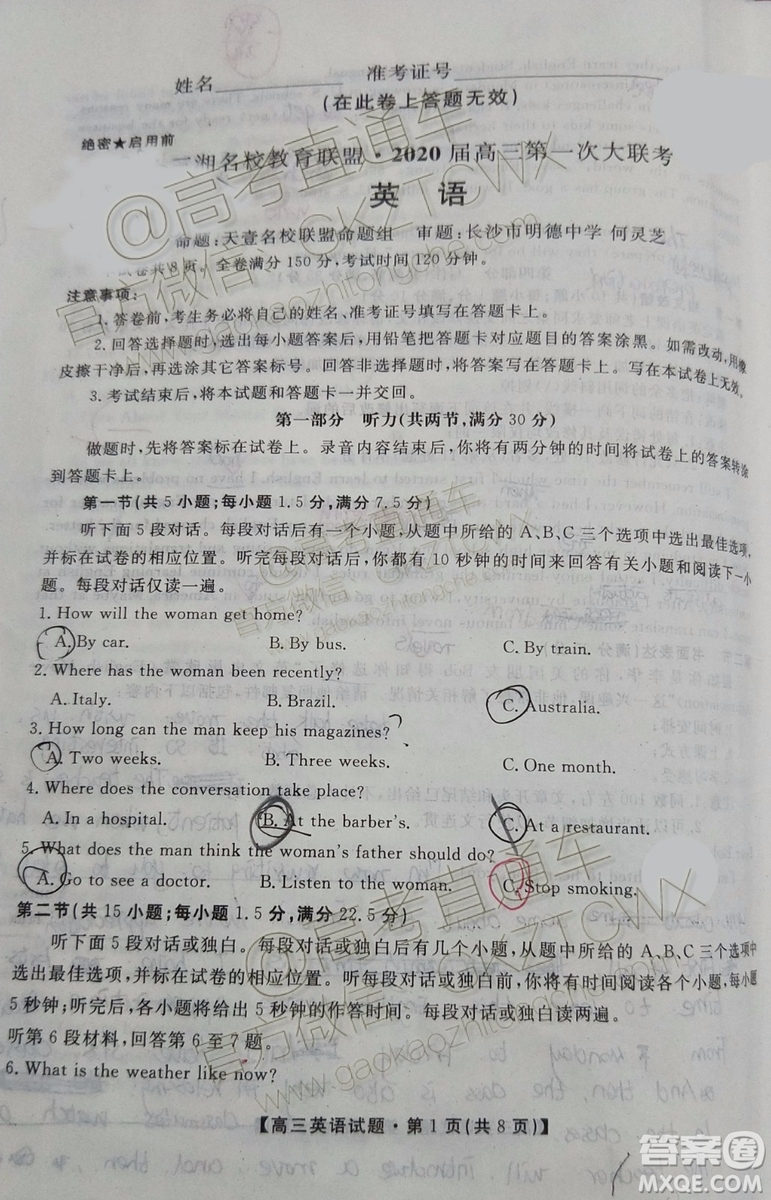 姓名 准考证号
(在此卷上答题无效)
绝密★启用前
湘名校教育联盟·2020届高三第一次大联考
英 语
命题:天壹名校联盟命题组 审题:长沙市明德中学 何灵芝
卷共8页。全卷满分150分,考试时间120分钟。
注意事项:
1. 答卷前,考生务必将自己的姓名、准考证号填写在答题卡上。
2. 回答选择题时,选出每小题答案后,用铅笔把答题卡对应题目的答案涂黑。如需改动,用橡
皮擦干净后,再选涂其它答案标号。回答非选择题时,将答案写在答题卡上。写在本试卷上无效。
3. 考试结束后,将本试题和答题卡一并交回。
第一部分 听力(共两节,满分30分)
做题时,先将答案标在试卷上。录音内容结束后,你将有两分钟的时间将试卷上的答案转涂
到答题卡上。
第一节(共5小题;每小题1.5分,满分7.5分)
听下面5段对话。每段对话后有一个小题,从题中所给的A、B、C三个选项中选出最佳选项,
并标在试卷的相应位置。听完每段对话后,你都有10秒钟的时间来回答有关小题和阅读下一小
题。每段对话仅读一遍。
1. How will the woman get home?
A. By car. B. By bus. C. By train.
2. Where has the woman been recently?
A. Italy. B. Brazil. C. Australia.
3. How long can the man keep his magazines?
A. Two weeks. B. Three weeks. C. One month.
4. Where does the conversation take place?
A. In a hospital. B. At the barber's. C. At a restaurant.
5. What does the man think the woman's father should do?
A. Go to see a doctor. B. Listen to the woman. C. Stop smoking.
第二节(共15小题;每小题1.5分,满分22.5分)
听下面5段对话或独白。每段对话或独白后有几个小题,从题中所给的A、B、C三个选项中
选出最佳选项,并标在试卷的相应位置。听每段对话或独白前,你将有时间阅读各个小题,每小题
5秒钟;听完后,各小题将给出5秒钟的作答时间。每段对话或独白读两遍。
听第6段材料,回答第6至7题。
6. What is the weather like now?
【高三英语试题·第1页(共8页)】
@高考直通车
官方微信:GKZTCWX
www.gaokaozhitongche.com
@高考直通车
官方微信:GKZTCWX
www.gaokaozhitongche.com
答案圈
MXQE.COM